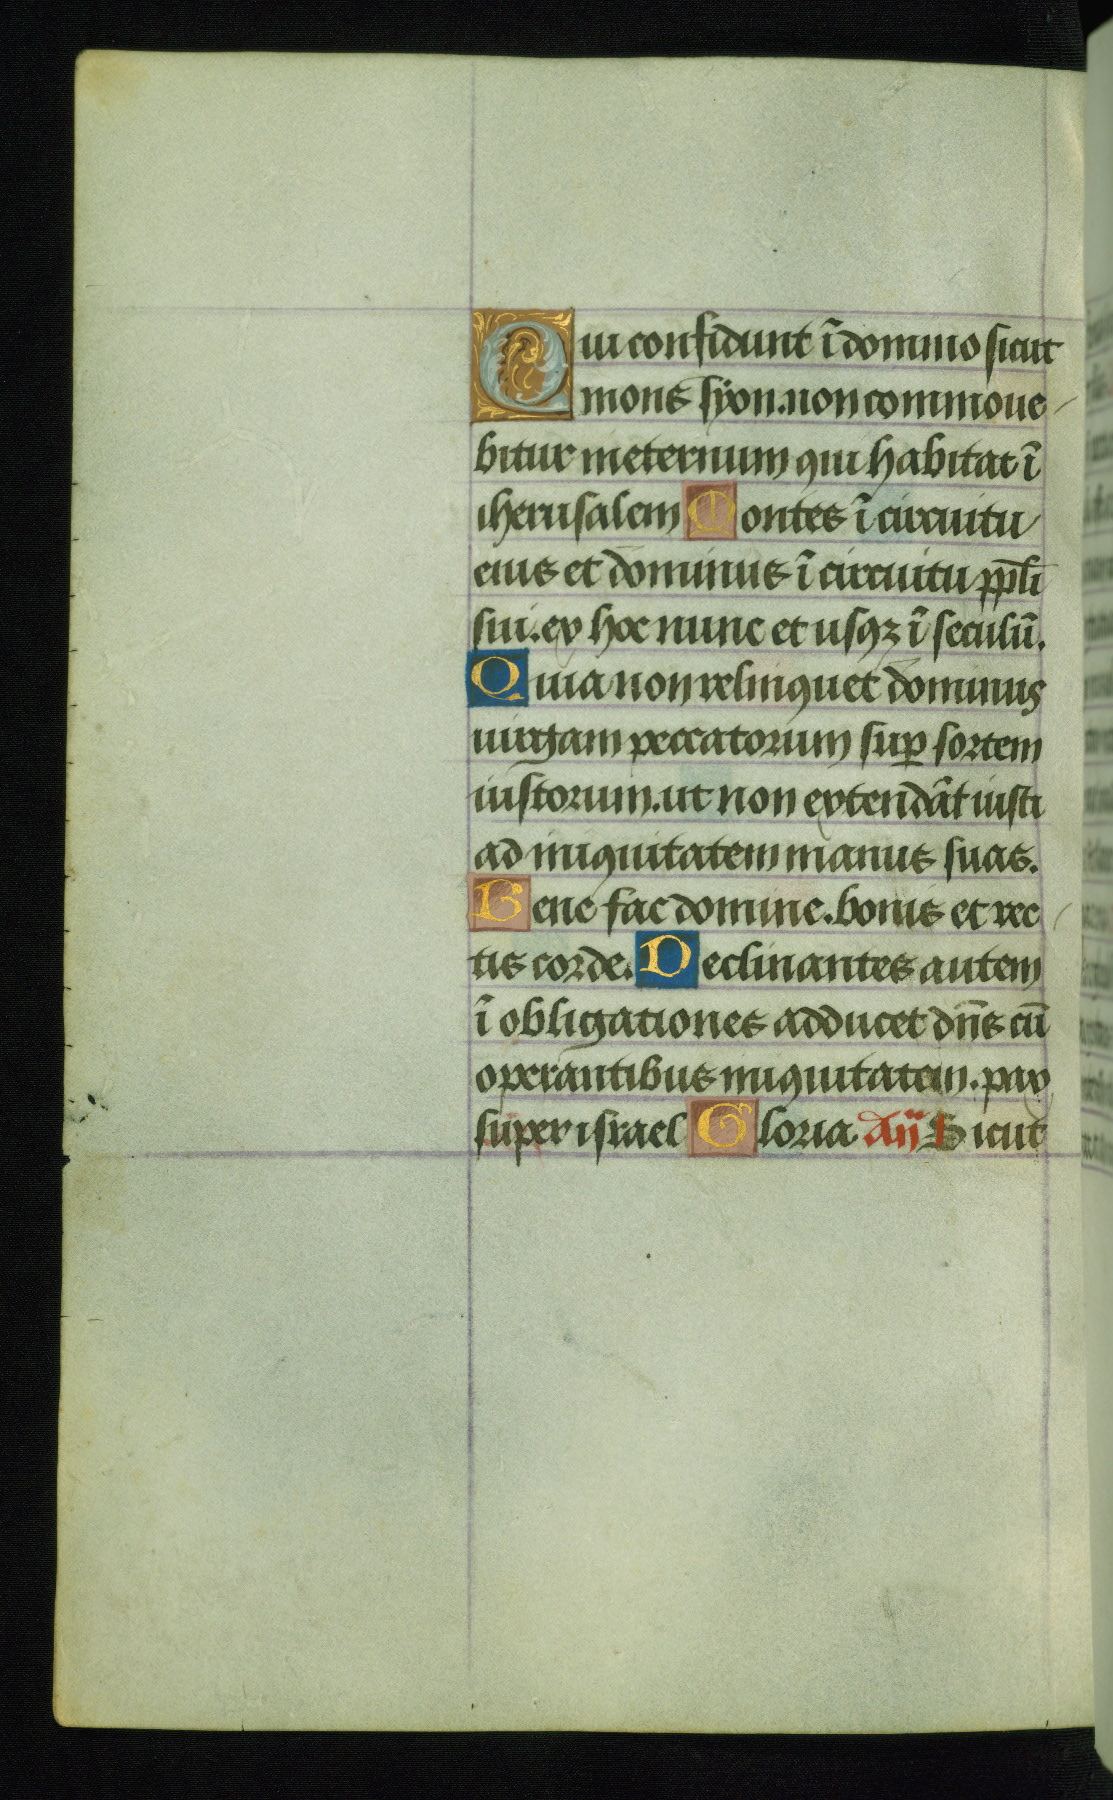 Qui confidunt ĩ domino sicut
mons syon. non commoue
bitur ineternum qui habitat ĩ
iherusalem Montes ĩ circuitu
eius et dominus ĩ circuitu ppl̃i
sui. ex hoc nunc et usqz ĩ seculũ.
Quia non relinquet dominus
uirgam peccatorum suꝑ sortem
iustorum. ut non extendãt iusti
ad iniquitatem manus suas.
Bene fac domine. bonis et rec
tis corde. Declinantes autem
ĩ obligationes adducet dñs cũ
operantibus iniquitatem. pax
super israel Gloria Añ Sicut